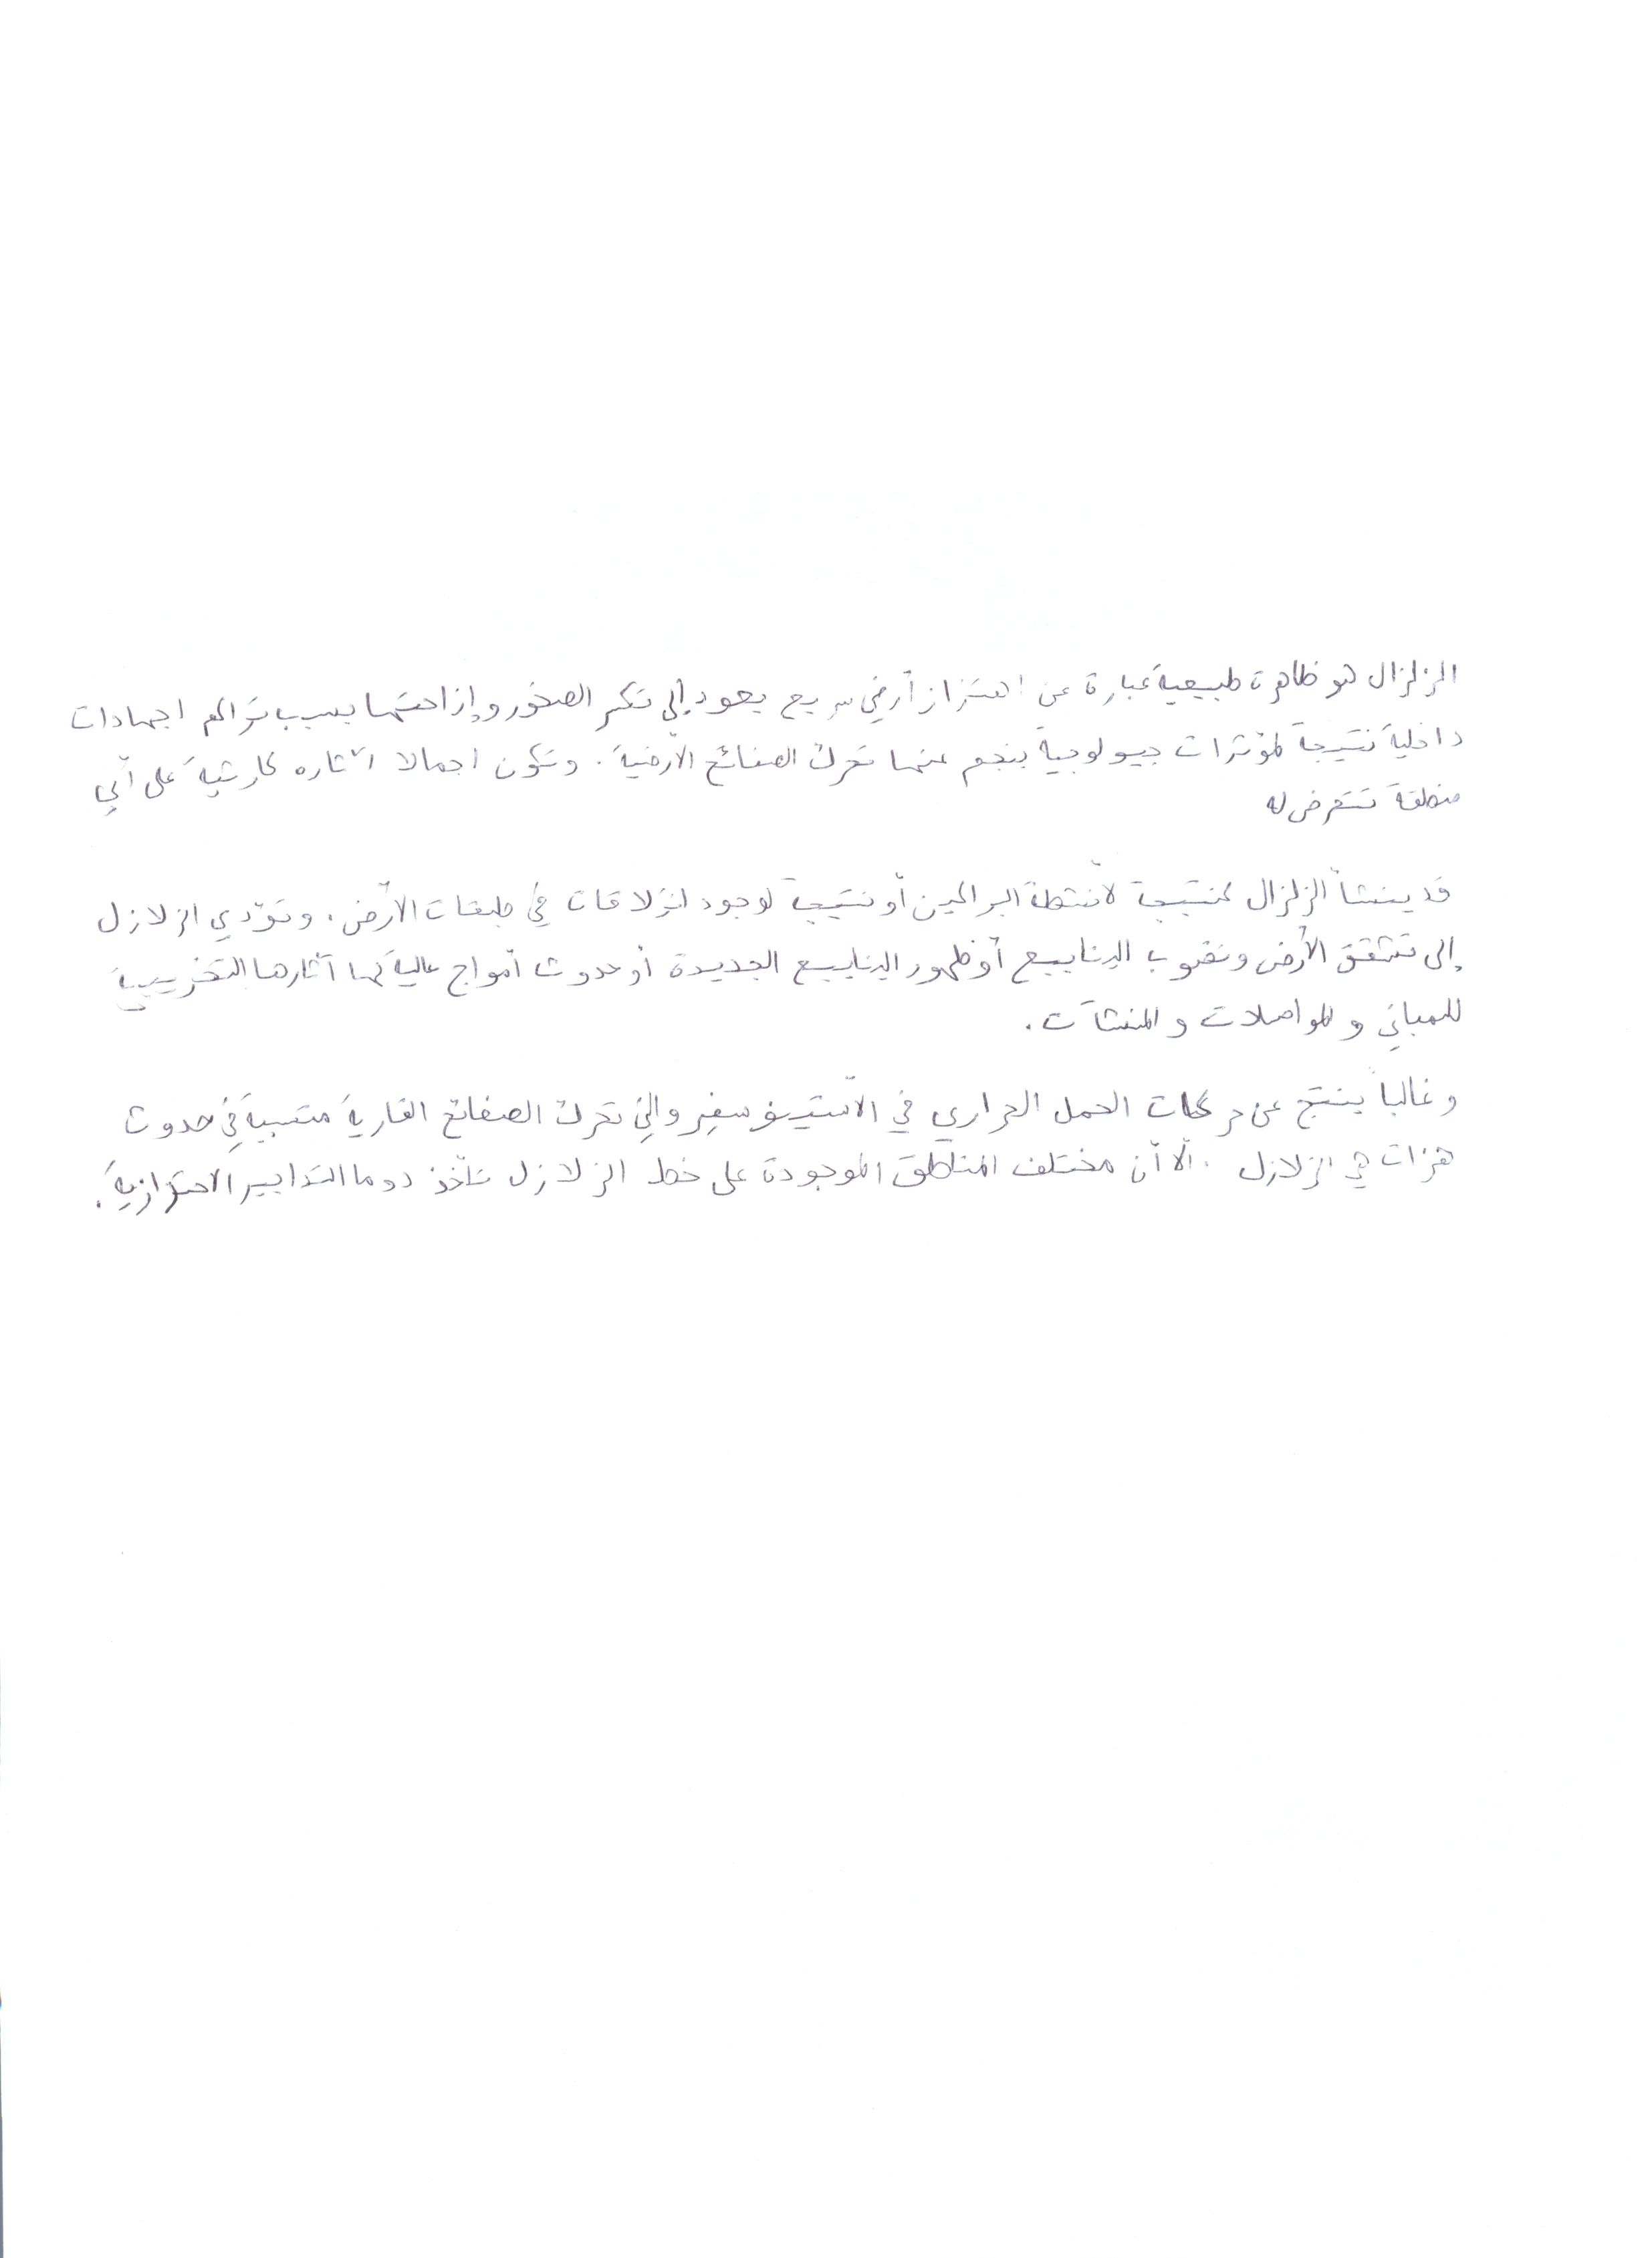 الزلزال هو ظاهرة طبيعية عبارة عن اهتزاز أرضي سريع يعود إلى تكسر الصخور وإزاحتها بسبب تراكم اجهادات
داخلية نتيجة لمؤثرات جيولوجية ينجم عنها تحرك الصفائح الأرضية. وتكون اجمالا آثاره كارثية على أي
منطقة تتعرض له
قد ينشأ الزلزال كنتيجة لأنشطة البراكين أو نتيجة لوجود انزلاقات في طبقات الأرض. وتؤدي الزلازل
إلى تشقق الأرض ونضوب الينابيع أو ظهور الينابيع الجديدة أو حدوث أمواج عالية كما آثارها التخريبية
للمباني و المواصلات و المنشآت.
وغالباً ينتج عن حركات الحمل الحراري في الأستينوسفير والتي تحرك الصفائح القارية متسببة في حدوث
هزات هي الزلازل. ألا أن مختلف المناطق الموجودة على خط الزلازل تأخذ دوما التدابير الاحترازية.